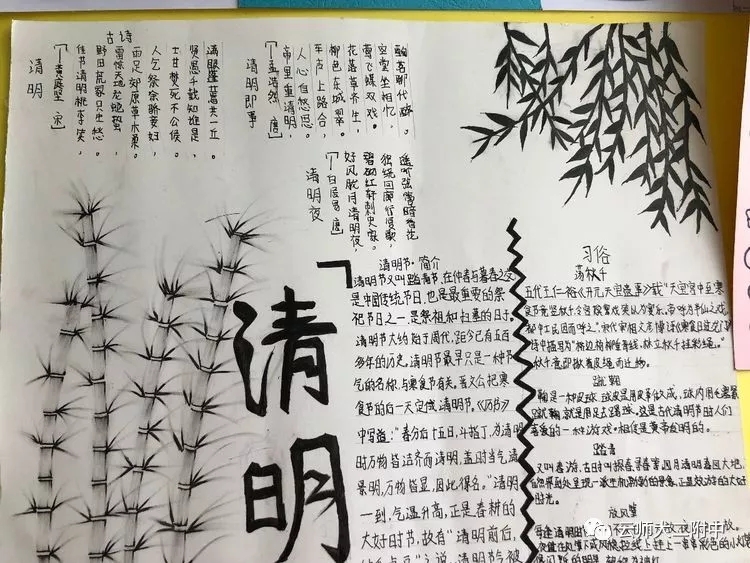 古诗
清明
[—黄庭坚 宋]
佳节清明桃李笑,
野田荒冢只生愁。
雷惊天地龙蛇蛰,
雨足郊原草木柔。
人乞祭余骄妾妇,
士甘焚死不公候。
贤愚千载知谁是,
满眼蓬蒿共一丘。
清明即事
[—孟浩然 唐]
帝里重清明,
人心自愁思。
车声上路合,
柳色东城翠。
花落草齐生,
莺飞蝶双戏。
空堂坐相忆,
酌茗聊代醉。
清明夜
[—白居易 唐]
好风胧月清明夜,
碧砌红轩刺史家。
独绕回廊行复歇,
遥听弦管暗看花
清明
清明节·简介
清明节又叫踏青节,在仲春与暮春之交
是中国传统节日,也是最重要的祭
祀节日之一,是祭祖和扫墓的日子,
清明节大约始于周代,距今已有五百
多年的历史。清明节最早只是一种节
气的名称,与寒食节有关。晋文公把寒
食节的后一天定做清明节。《历书》
中写道:"春分后十五日,斗指丁,为清明
时万物皆洁齐而清明,盖时当气清
景明,万物皆显,因此得名。"清明
一到,气温升高,正是春耕的
大好时节,故有"清明前后,
之说。清明节今被
习俗
荡秋千
五代王仁裕《开元天宝遗事》载"天宝宫中至寒
食节竞竖秋千,令宫嫔戏笑以为宴乐。帝呼为半仙之戏,
都中士民因而呼之。"宋代宰相文彦博诗《寒食日过龙门》
诗中描写为"桥边杨柳垂青线,林立秋千挂彩绳。"
秋千意即揪着皮绳而迁移。
蹴鞠
鞠是一种皮球,球皮是用皮革做成,球内用毛塞紧
蹴鞠,就是用足去踢球。这是古代清明节时人们
喜爱的一种游戏。相传是黄帝发明的。
踏青
又叫春游,古时叫探春、寻春等四月清明春回大地,
自然界到处呈现一派生机勃勃的景象,正是郊游的大好
时光。
放风筝
云师大一附中